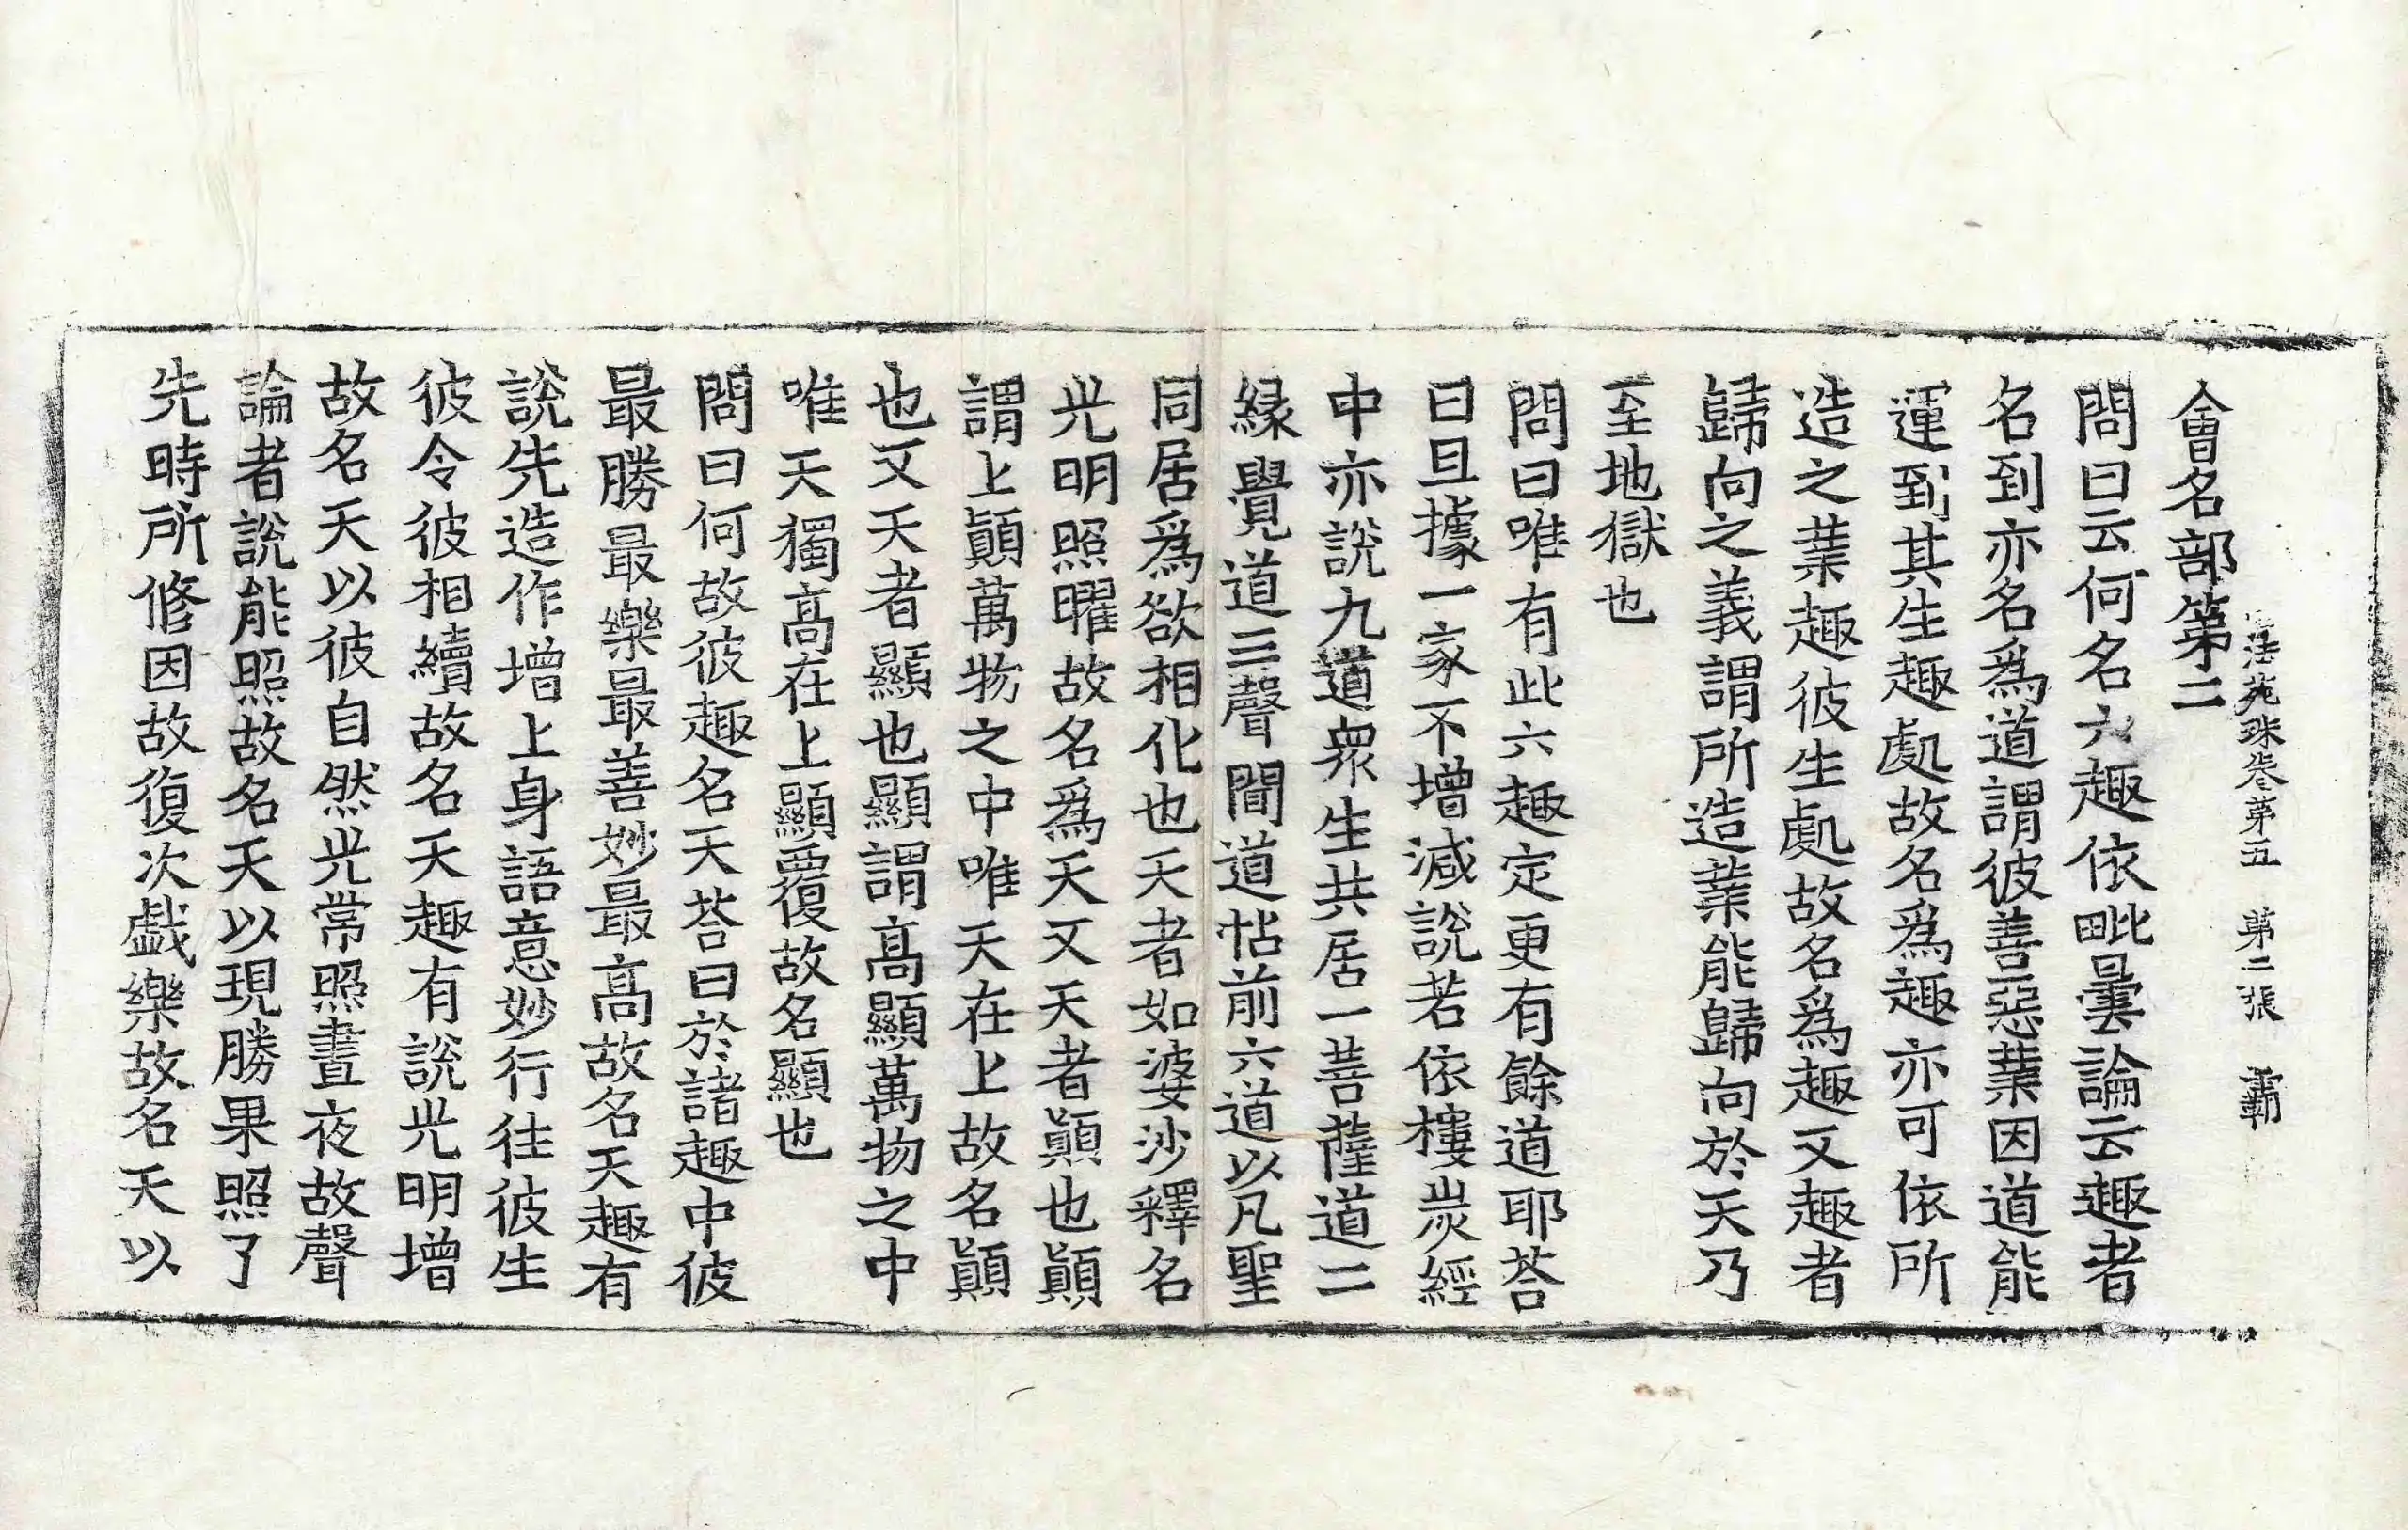 法苑珠卷第五 第二張 霸
會名部第二
問曰云何名六趣依毗曇論云趣者
名到亦名爲道謂彼善惡業因道能
運到其生趣處故名爲趣亦可依所
造之業趣彼生處故名爲趣又趣者
歸向之義謂所造業能歸向於天乃
至地獄也
問曰唯有此六趣定更有餘道耶荅
曰且據一家不增減說若依樓炭經
中亦說九道衆生共居一菩薩道二
緣覺道三聲聞道帖前六道以凡聖
同居爲欲相化也天者如婆沙釋名
光明照曜故名爲天又天者顚也顚
謂上顚萬物之中唯天在上故名顚
也又天者顯也顯謂高顯萬物之中
唯天獨高在上顯覆故名顯也
問曰何故彼趣名天荅曰於諸趣中彼
最勝最樂最善妙最高故名天趣有
說先造作增上身語意妙行往彼生
彼令彼相續故名天趣有說光明增
故名天以彼自然光常照晝夜故聲
論者說能照故名天以現勝果照了
先時所修因故復次戲樂故名天以